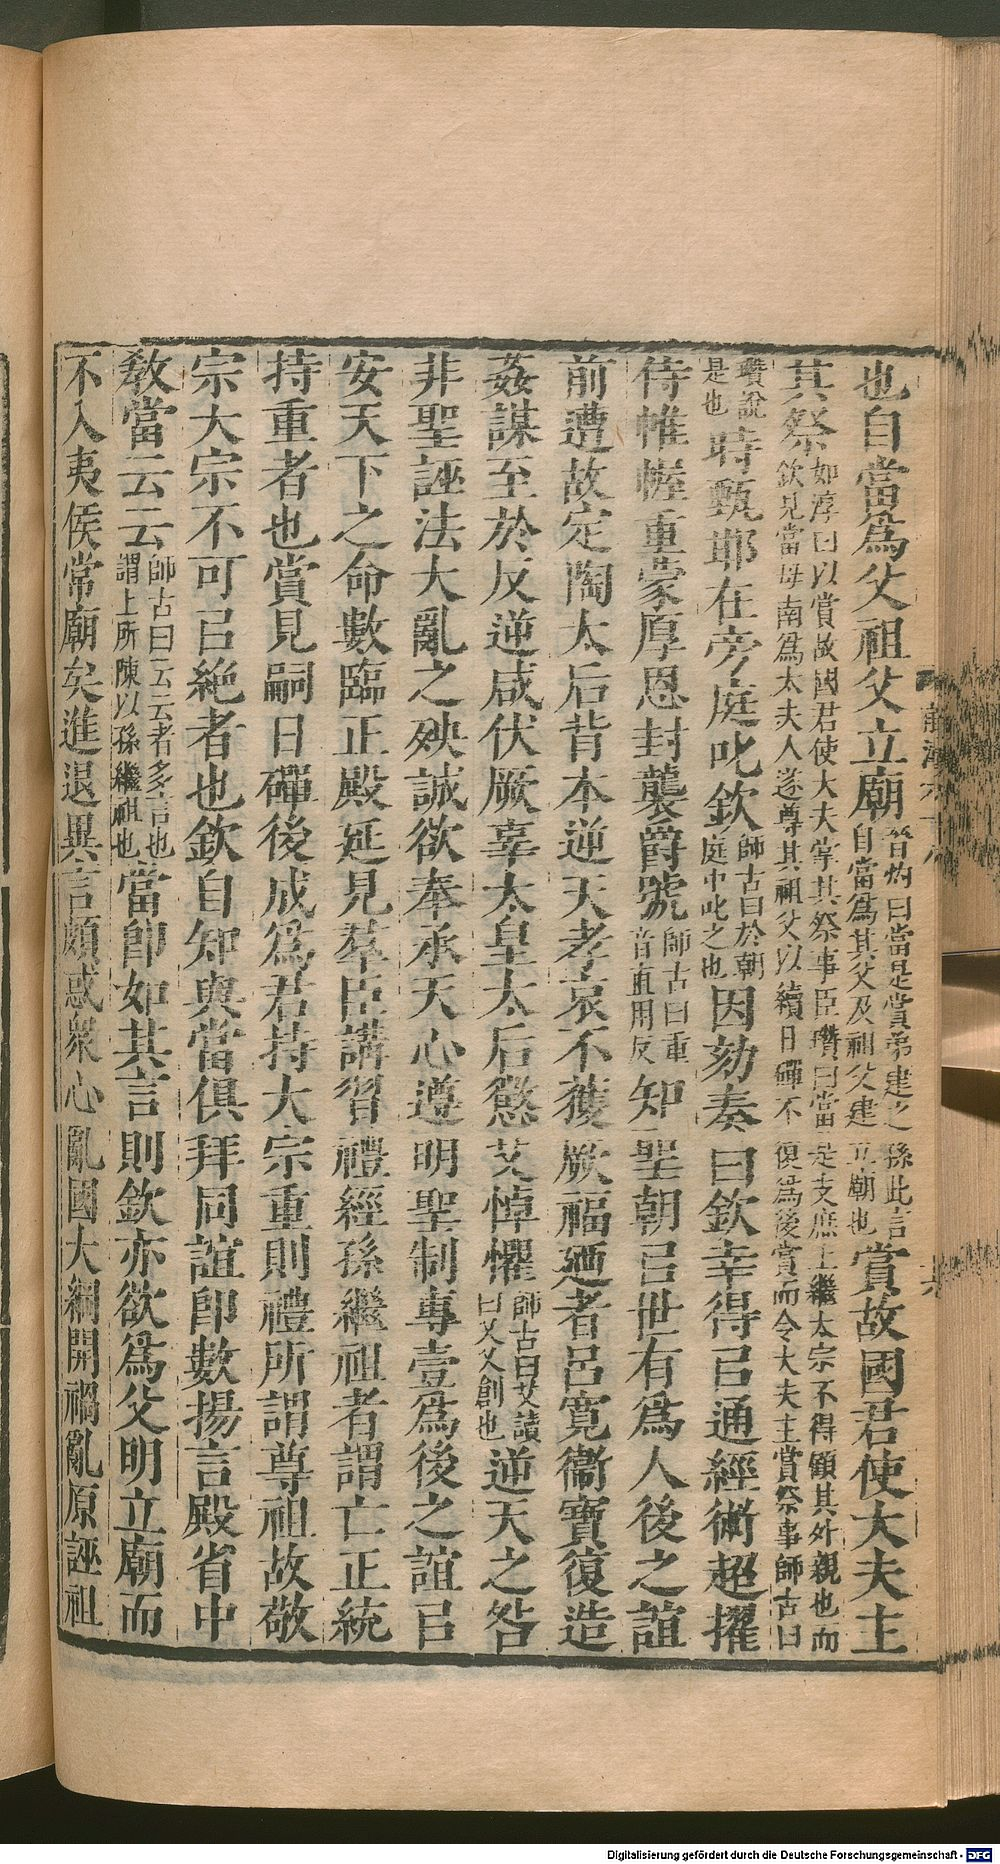 也自當爲父祖父立廟晉灼曰當是賞弟建之孫此言自當爲其父及祖父建立廟也賞故國君使大夫主
其祭如淳曰以賞故國君使大夫掌其祭事臣瓚曰當是支庶上繼太宗不得顧其外親也而欽見當母南爲太夫人遂尊其祖父以續日磾不復爲後賞而令大夫主賞祭事師古曰
瓚說是也時甄邯在旁庭叱欽師古曰於朝庭中叱之也因劾奏曰欽幸得㠯通經術超擢
侍帷幄重蒙厚恩封襲爵號師古曰重音直用反知聖朝㠯世有爲人後之誼
前遭故定陶太后背本逆天孝哀不獲厥福廼者呂寬衞寶復造
姦謀至於反逆咸伏厥辜太皇太后懲艾悼懼師古曰艾讀曰乂乂創也逆天之咎
非聖誣法大亂之殃誠欲奉承天心遵明聖制專壹爲後之誼㠯
安天下之命數臨正殿延見羣臣講習禮經孫繼祖者謂亡正統
持重者也賞見嗣日磾後成爲君持大宗重則禮所謂尊祖故敬
宗大宗不可㠯絶者也欽自知與當俱拜同誼卽數揚言殿省中
敎當云云師古曰云云者多言也謂上所陳以孫繼祖也當卽如其言則欽亦欲爲父明立廟而
不入夷侯常廟矣進退異言頗惑衆心亂國大綱開禍亂原誣祖
Digitalisierung gefördert durch die Deutsche Forschungsgemeinschaft - DFG